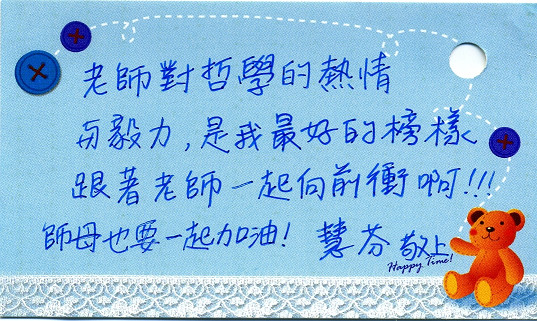 老師對哲學的熱情
与毅力,是我最好的榜樣
跟著老師一起向前衝啊!!!
師母也要一起加油! 慧芬 敬上
Happy Time!